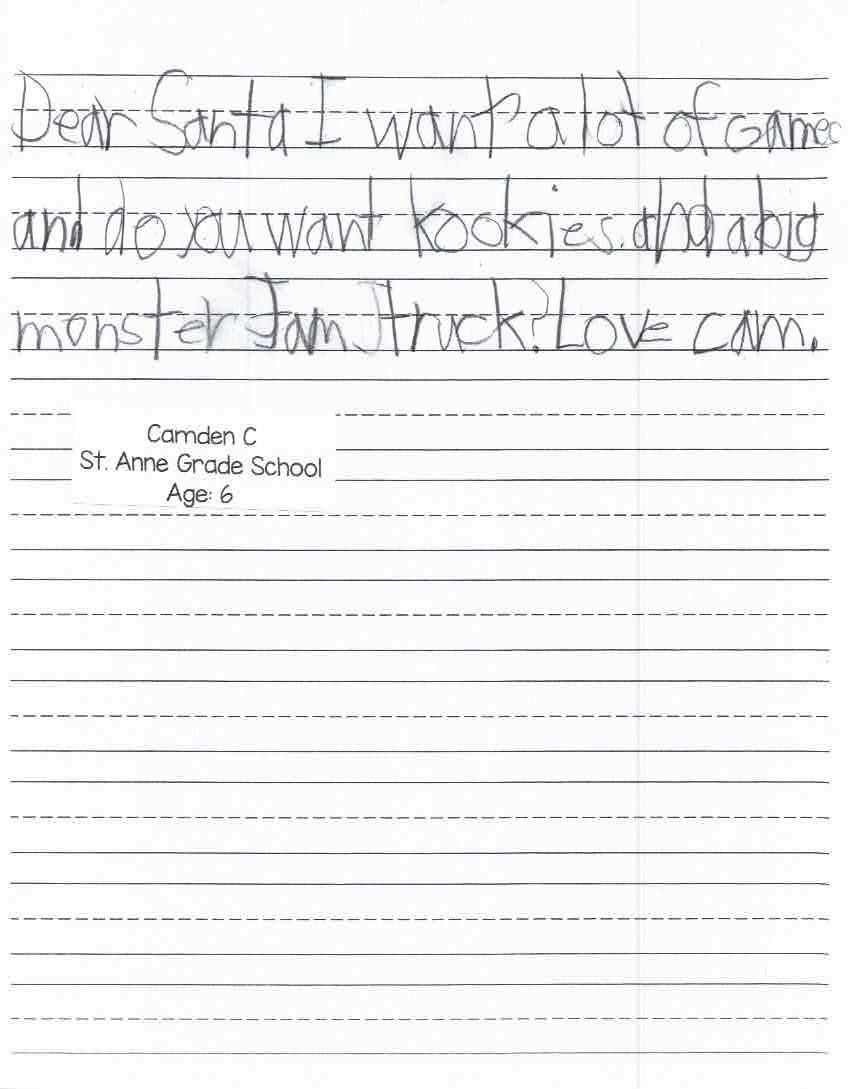 Dear Santa I want a lot of Games
and do you want kookies. and a big
monster Jam truck? Love cam.
Camden C
St. Anne Grade School
Age: 6